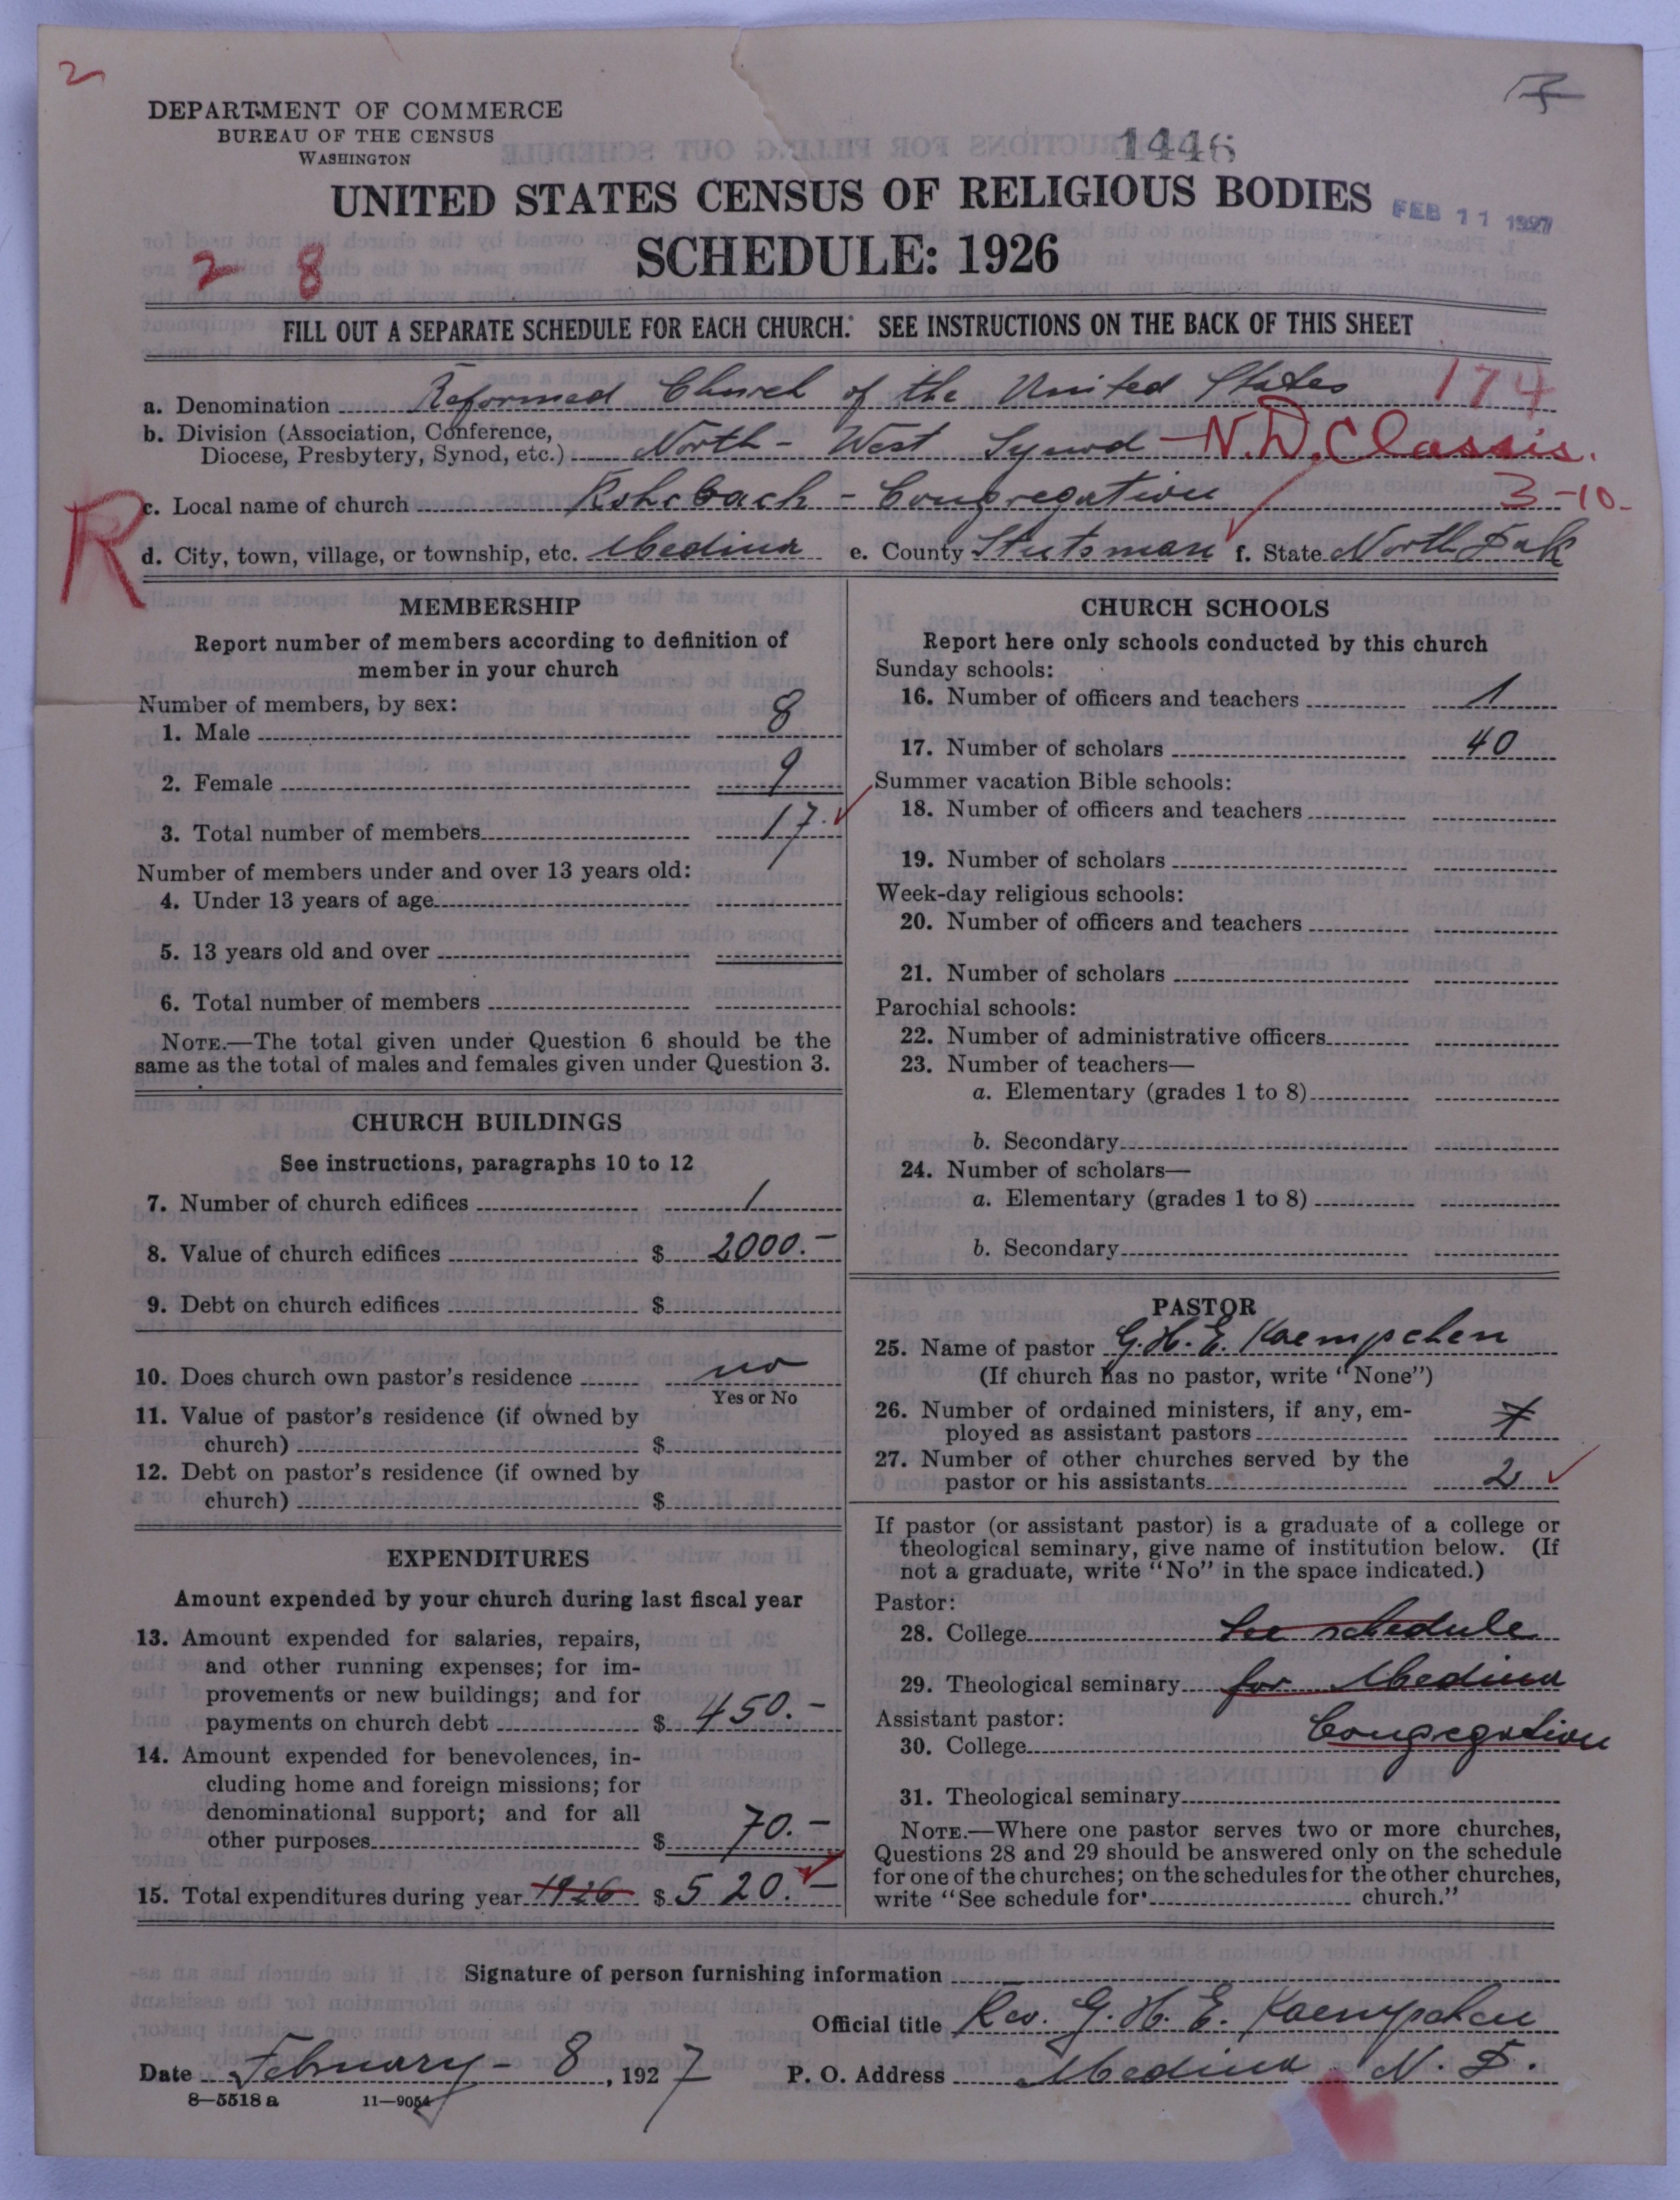 2
7
DEPARTMENT OF COMMERCE
BUREAU OF THE CENSUS
WASHINGTON
1446
UNITED STATES CENSUS OF RELIGIOUS BODIES
FEB 11 1927
SCHEDULE: 1926
2 8
FILL OUT A SEPARATE SCHEDULE FOR EACH CHURCH. SEE INSTRUCTIONS ON THE BACK OF THIS SHEET
a. Denomination Reformed Church of the United States 174
b. Division (Association, Conference,
Diocese, Presbytery, Synod, etc.) North-West Synod - N.D. Classis.
R
c. Local name of church Rohrbach - Congregation 3-10-
d. City, town, village, or township, etc. Medina e. County Stutsman f. State North Dak
MEMBERSHIP
Report number of members according to definition of
member in your church
Number of members, by sex:
1. Male 8
2. Female 9
3. Total number of members 17.
Number of members under and over 13 years old:
4. Under 13 years of age
5. 13 years old and over
6. Total number of members
NOTE.—The total given under Question 6 should be the
same as the total of males and females given under Question 3.
CHURCH BUILDINGS
See instructions, paragraphs 10 to 12
7. Number of church edifices 1
8. Value of church edifices $ 2000.-
9. Debt on church edifices $
10. Does church own pastor's residence no
Yes or No
11. Value of pastor's residence (if owned by
church) $
12. Debt on pastor's residence (if owned by
church) $
EXPENDITURES
Amount expended by your church during last fiscal year
13. Amount expended for salaries, repairs,
and other running expenses; for im-
provements or new buildings; and for
payments on church debt $ 450.-
14. Amount expended for benevolences, in-
cluding home and foreign missions; for
denominational support; and for all
other purposes $ 70.-
15. Total expenditures during year 1926 $ 520.-
CHURCH SCHOOLS
Report here only schools conducted by this church
Sunday schools:
16. Number of officers and teachers 1
17. Number of scholars 40
Summer vacation Bible schools:
18. Number of officers and teachers
19. Number of scholars
Week-day religious schools:
20. Number of officers and teachers
21. Number of scholars
Parochial schools:
22. Number of administrative officers
23. Number of teachers—
a. Elementary (grades 1 to 8)
b. Secondary
24. Number of scholars—
a. Elementary (grades 1 to 8)
b. Secondary
PASTOR
25. Name of pastor G. H. E. Kaempchen
(If church has no pastor, write "None")
26. Number of ordained ministers, if any, em-
ployed as assistant pastors
27. Number of other churches served by the
pastor or his assistants 2
If pastor (or assistant pastor) is a graduate of a college or
theological seminary, give name of institution below. (If
not a graduate, write "No" in the space indicated.)
Pastor:
28. College See schedule
29. Theological seminary for Medina
Assistant pastor:
30. College Congregation
31. Theological seminary
NOTE.—Where one pastor serves two or more churches,
Questions 28 and 29 should be answered only on the schedule
for one of the churches; on the schedules for the other churches,
write "See schedule for church."
Signature of person furnishing information
Official title Rev. G. H. E. Kaempchen
Date February - 8, 1927 P. O. Address Medina N. D.
8—5518 a 11—9054